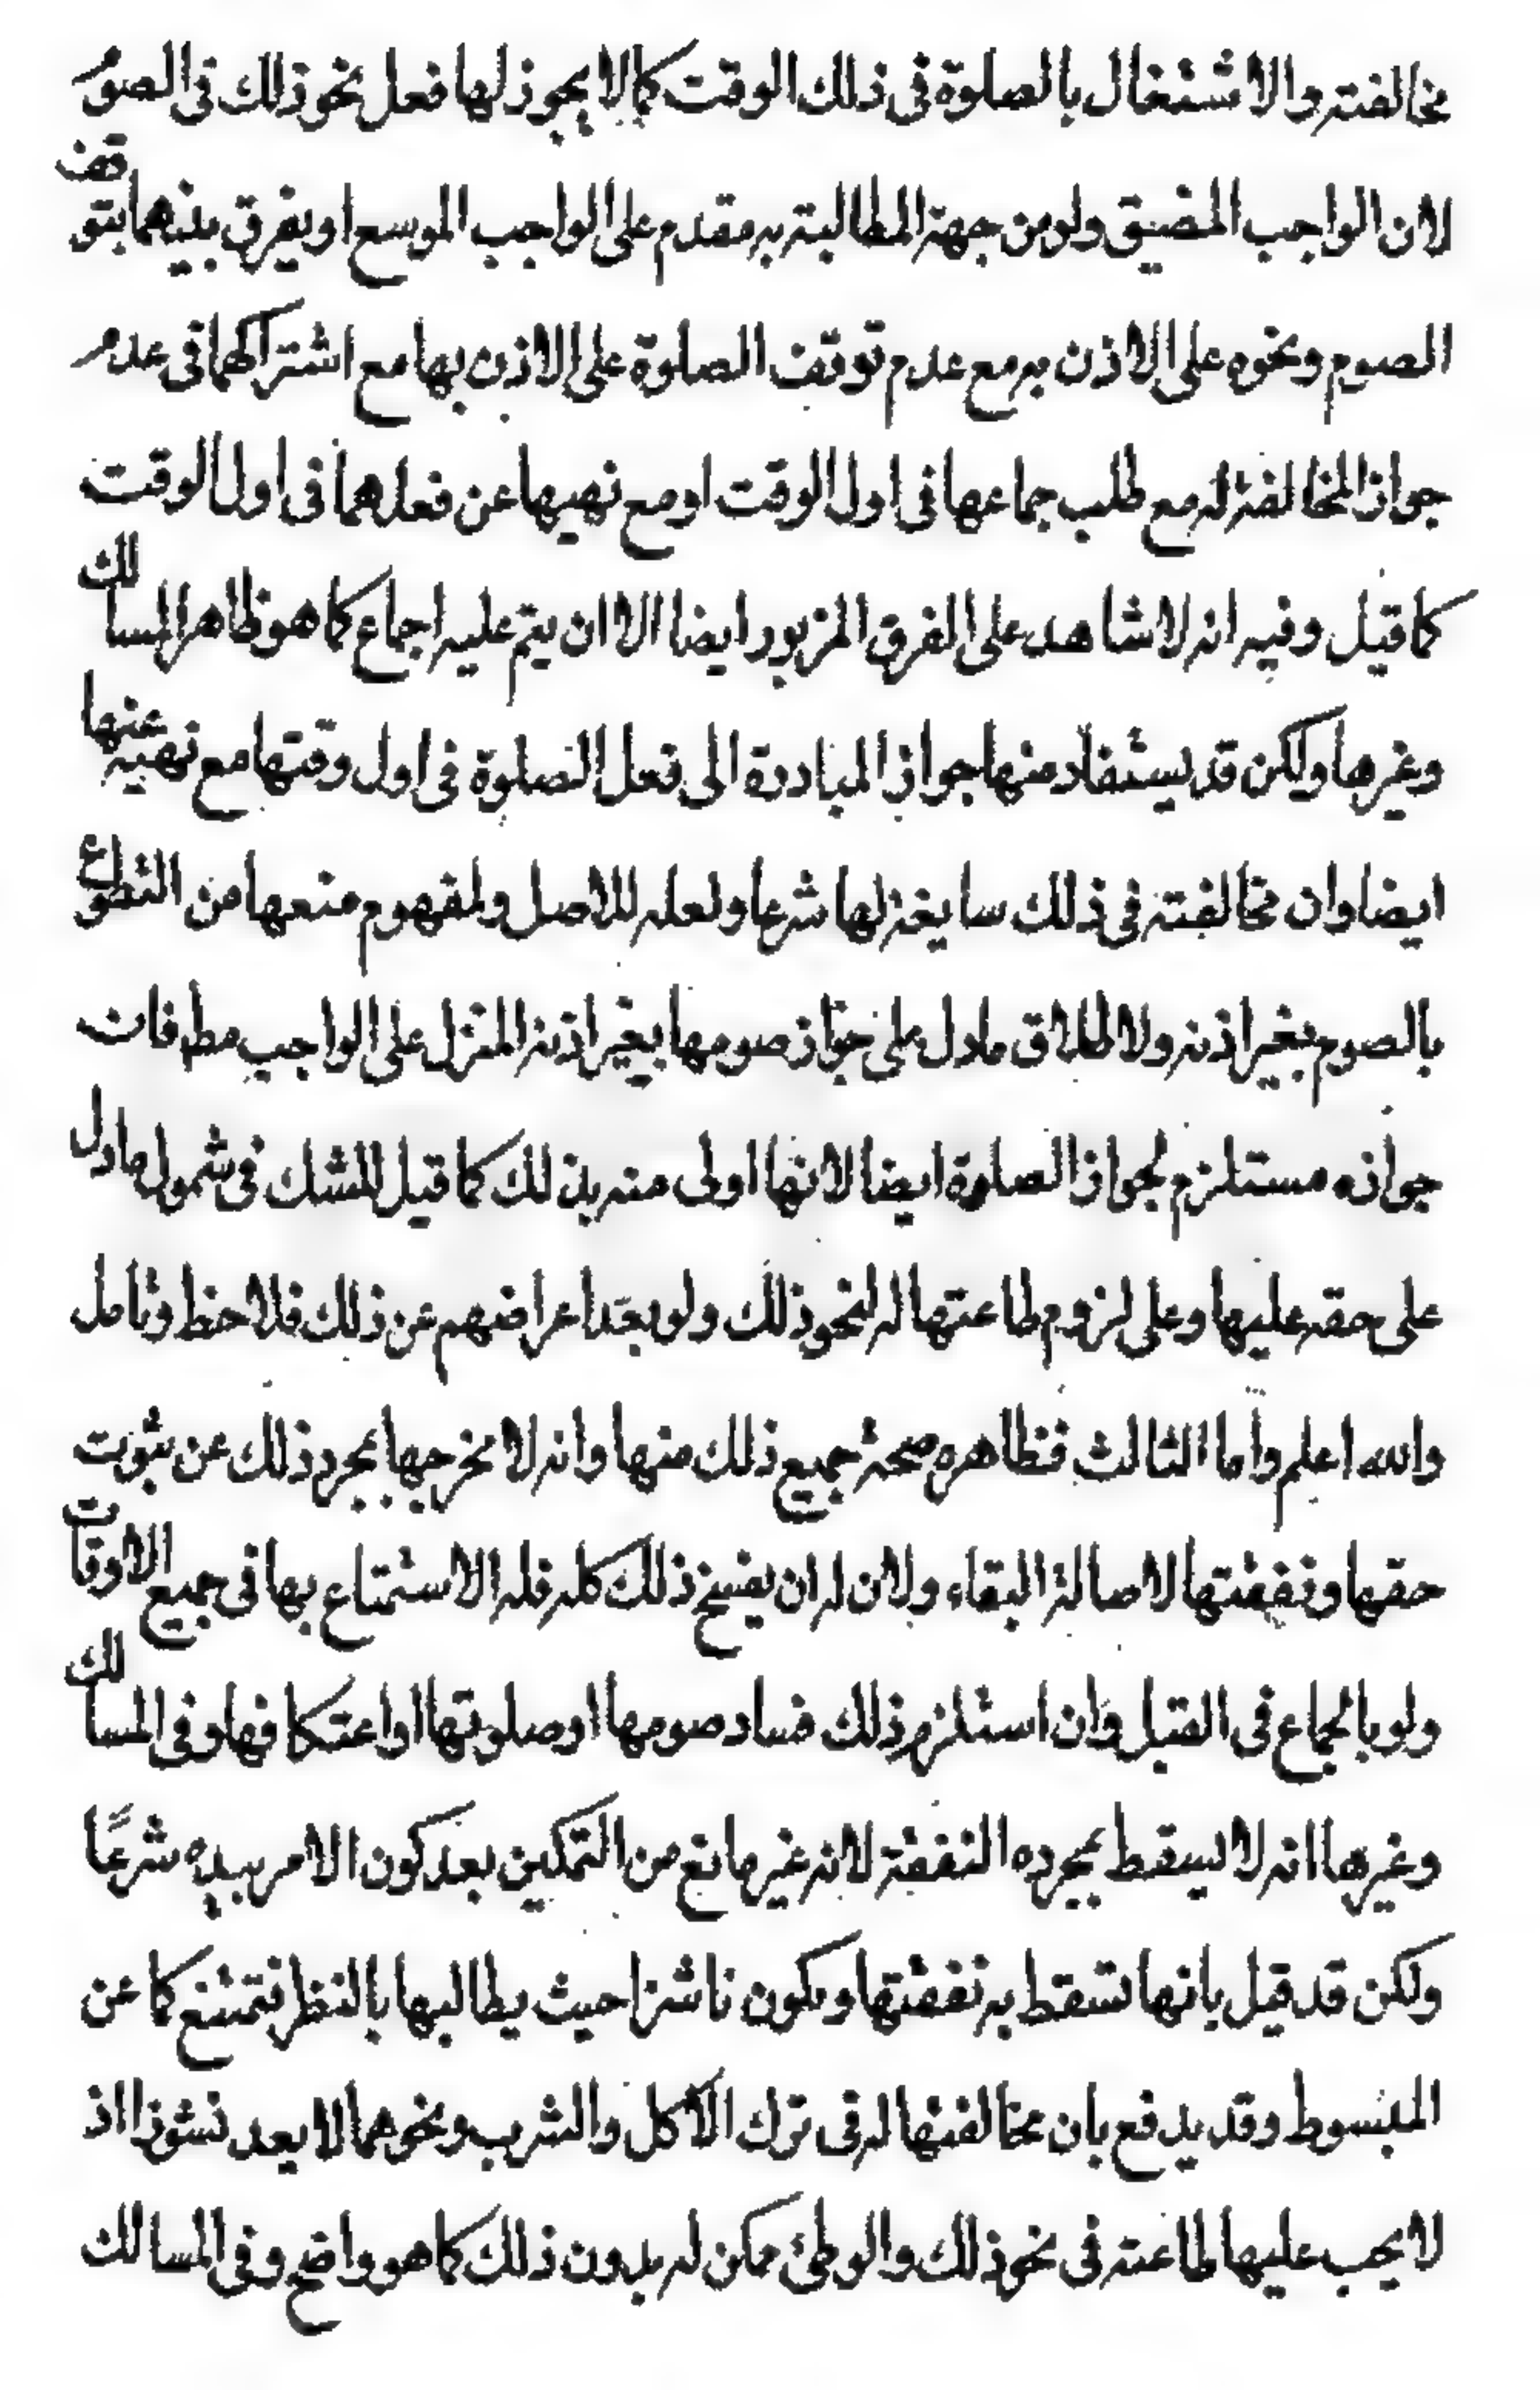 مخالفته والاشتغال بالصلوة فى ذلك الوقت كما لا يجوز لها فعل نحو ذلك فى الصوم
لان الواجب المضيق ولو من جهة المطالبة به مقدم على الواجب الموسع او يفرق بينهما بتوقف
الصوم ونحوه على الاذن به مع عدم توقف الصلوة على الاذن بها مع اشتراكهما فى عدم
جواز المخالفة له مع طلب جماعها فى اول الوقت او مع نهيها عن فعلهما فى اول الوقت
كما قيل وفيه انه لا شاهد على الفرق المزبور ايضا الا ان يتم عليه اجماع كما هو ظاهر المسالك
وغيرها ولكن قد يستفاد منها جواز المبادرة الى فعل الصلوة فى اول وقتها مع نهيه عنها
ايضا وان مخالفته فى ذلك سايغة لها شرعا ولعله للاصل ولمفهوم منعها من التطوع
بالصوم بغير اذنه ولاطلاق ما دل على جواز صومها بغير اذنه المنزل على الواجب مط فان
جوازه مستلزم لجواز الصلوة ايضا لانها اولى منه بذلك كما قيل للشك فى شمول ما دل
على حقه عليها وعلى لزوم طاعتها له لنحو ذلك ولو بعد اعراضهم عن ذلك فلاحظ وتامل
والله اعلم واما الثالث فظاهره صحة جميع ذلك منها وانه لا يخرجها بمجرد ذلك عن ثبوت
حقها ونفقتها لاصالة البقاء ولان له ان يفسخ ذلك كله فله الاستمتاع بها فى جميع الاوقات
ولو بالجماع فى القبل وان استلزم ذلك فساد صومها او صلوتها او اعتكافها وفى المسالك
وغيرها انه لا يسقط بمجرده النفقة لانه غير مانع من التمكين بعد كون الامر بيده شرعًا
ولكن قد قيل بانها تسقط به نفقتها ويكون ناشزا حيث يطالبها بالفطر فتمتنع كما عن
المبسوط وقد يدفع بان مخالفتها له فى ترك الاكل والشرب ونحوهما لا يعد نشوزا اذ
لا يجب عليها طاعته فى نحو ذلك والوطئ ممكن له بدون ذلك كما هو واضح وفى المسالك